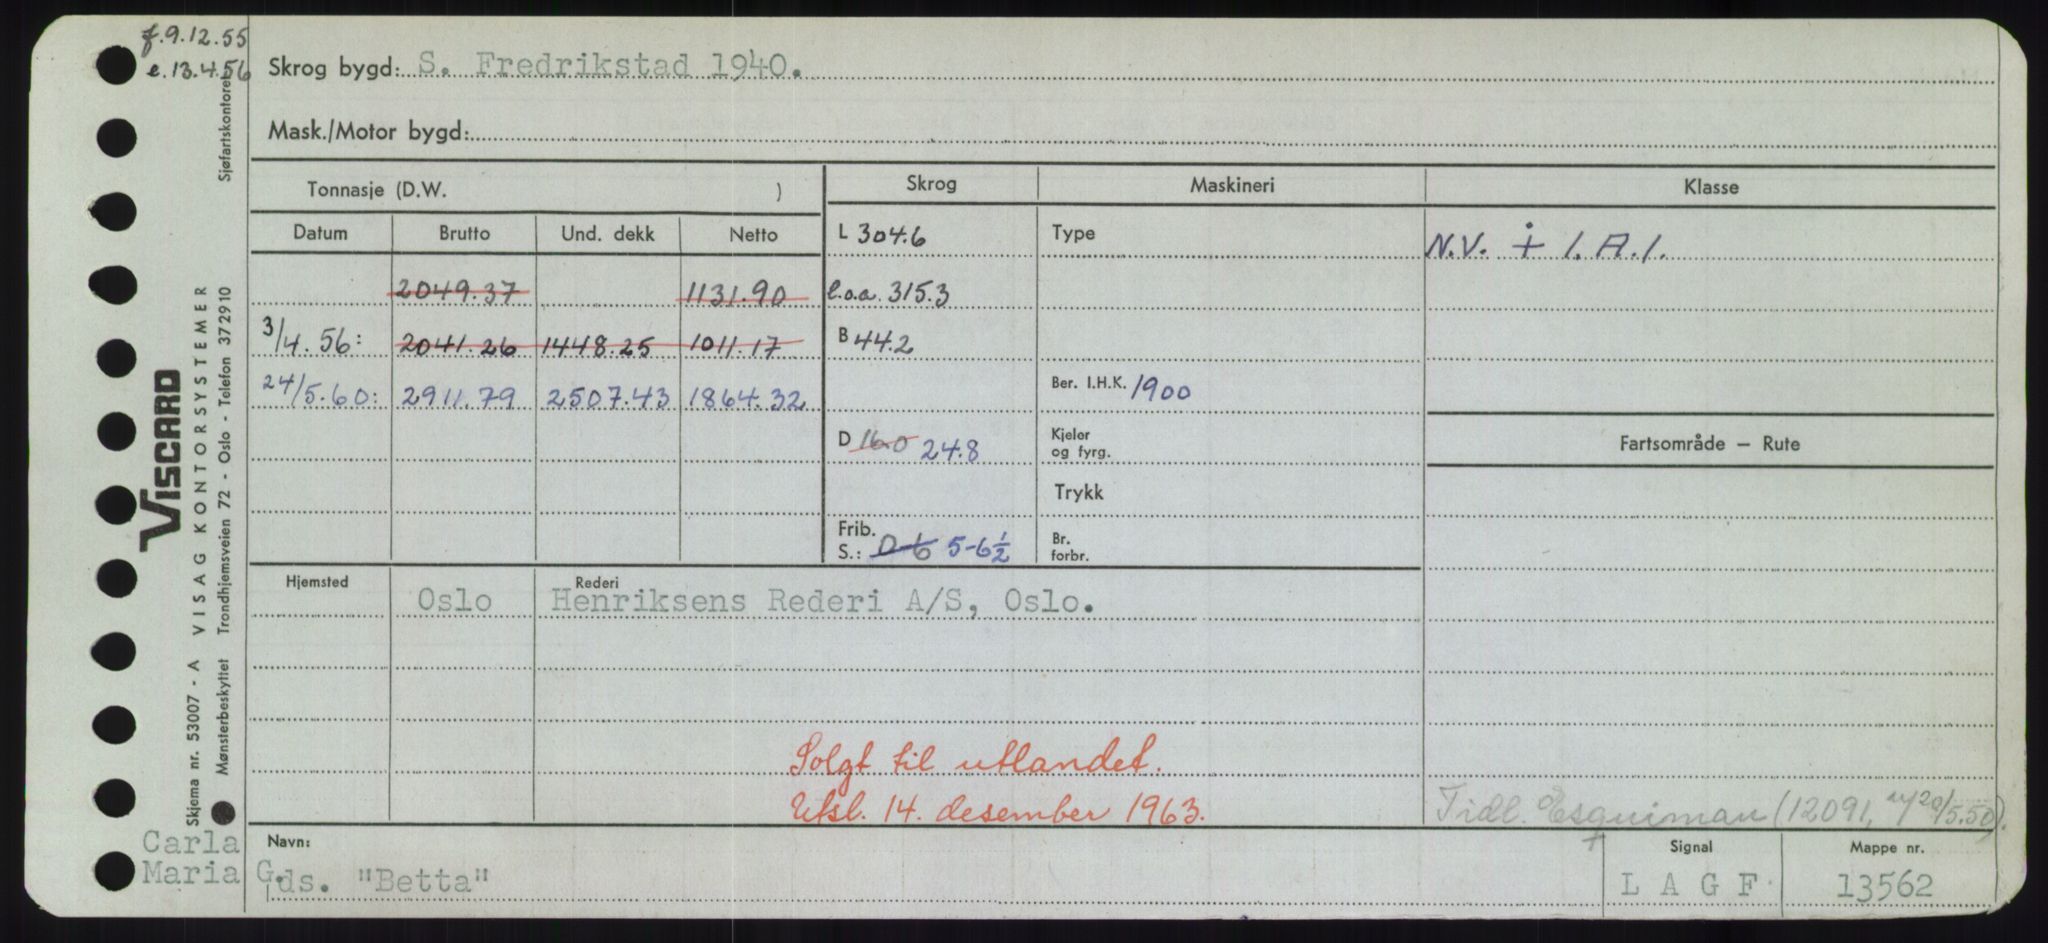 f.9.12.55
e.13.4.56
Skrog bygd: S. Fredrikstad 1940.
Mask./Motor bygd:
Tonnasje (D.W. )
Skrog Maskineri Klasse
Datum Brutto Und. dekk Netto
L 304.6 Type N.V. + 1.A.1.
2049.37 1131.90 l.o.a. 315.3
3/4.56: 2041.26 1448.25 1011.17 B 44.2
24/5.60: 2911.79 2507.43 1864.32 Ber. I.H.K. 1900
D 16.0 24.8 Kjeler og fyrg. Fartsområde — Rute
Trykk
Frib. S.: 0-6 5-6½ Br. forbr.
Hjemsted Oslo Rederi Henriksens Rederi A/S, Oslo.
Solgt til utlandet.
Utsl. 14. desember 1963.
Tidl. Esquiman (12091, 20/5.50).
Navn: ds. "Betta"
Signal L A G F
Mappe nr. 13562
Carla
Maria G.
VISCARD
VISAG KONTORSYSTEMER
Skjema nr. 53007 - A
Mønsterbeskyttet Trondhjemsveien 72 - Oslo - Telefon 37 29 10
Sjøfartskontoret